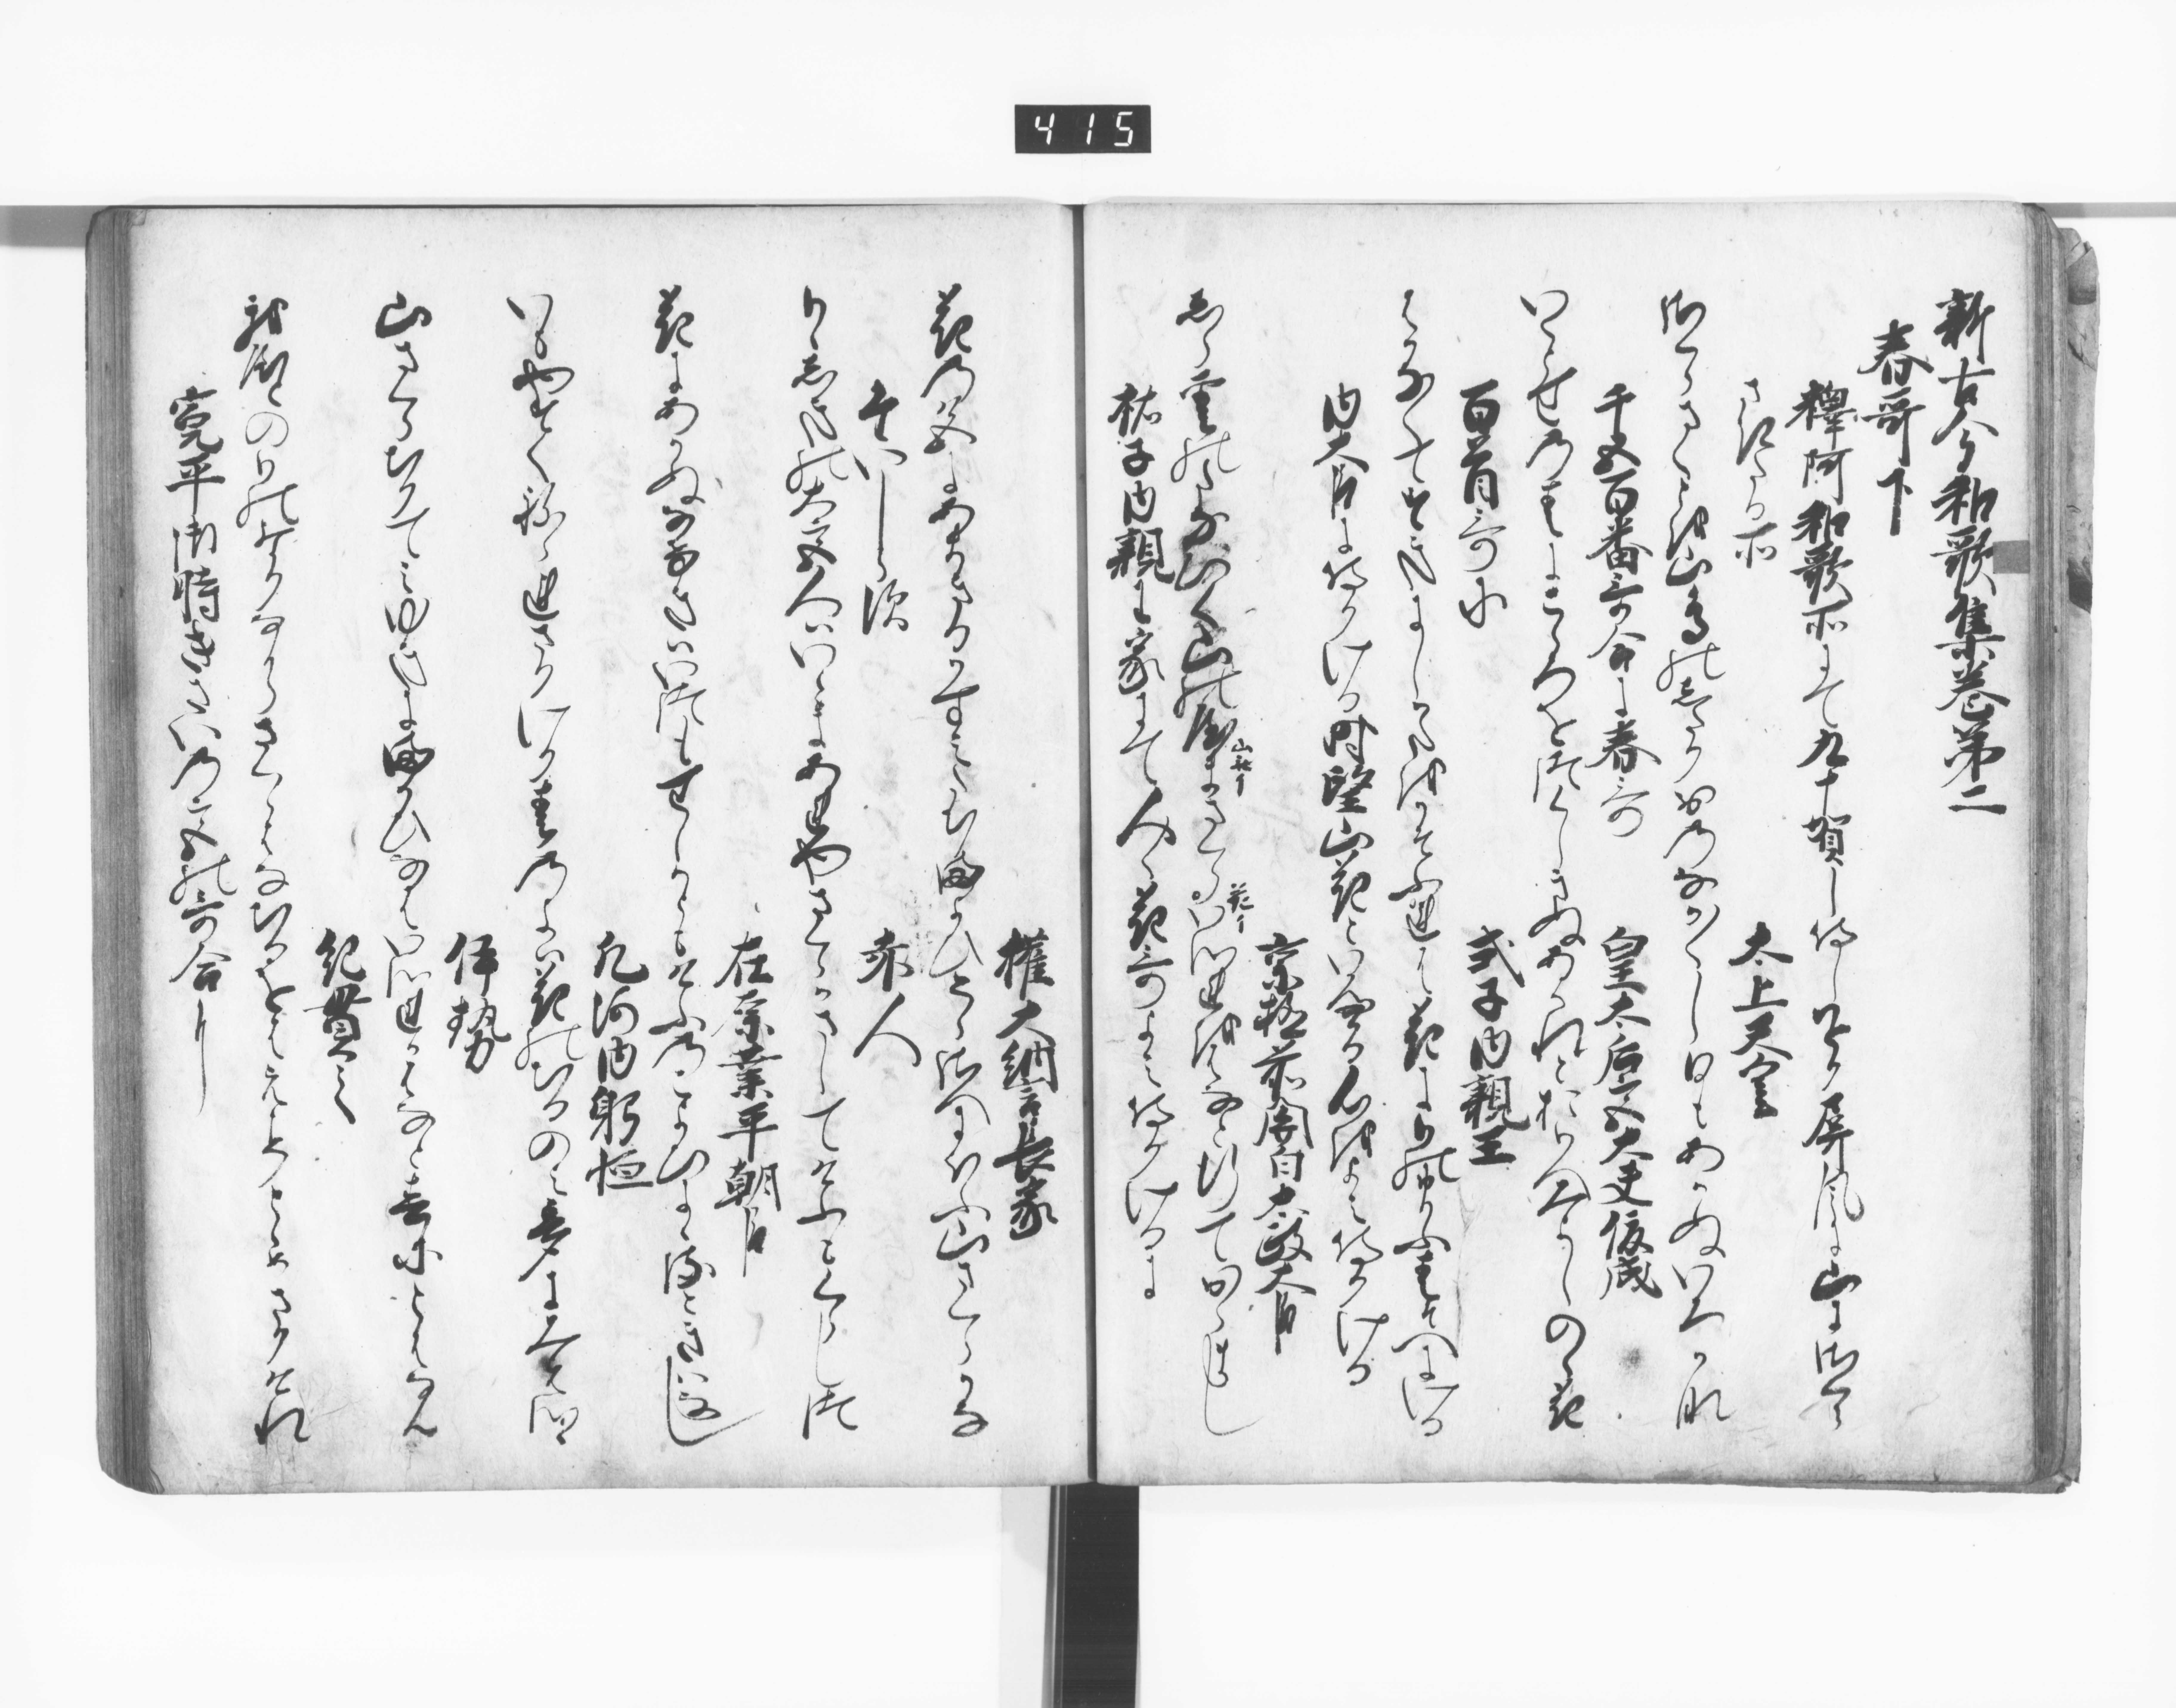 415
新古今和歌集巻第二
春哥下
釋阿和歌所にて九十賀し侍しをり屏風に山に櫻
さきたる所
太上天皇
桜さくとを山鳥のしたりおのなか〱し日もあかぬいろかな
千五百番哥合に春哥
皇太后宮大夫俊成
いくとせの春にこゝろをつくしきぬあはれとおもへみよしのゝ花
百首哥に
式子内親王
はかなくてすきにしかたをかそふれは花にもの思ふ春そへにける
内大臣に侍りける時望山花といへる心をよみ侍りける
京極前関白太政大臣
しら雲のたなひく山の
山のイ
さくら
花イ
いつれをはなと行ておらまし
祐子内親王家にて人〻花哥よみ侍りけるに
権大納言長家
花の色にあまきるかすみたちまよひそらさへにほふ山さくらかな
たいしらす
赤人
もゝしきの大宮人はいとまあれやさくらかさしてけふもくらしつ
在原業平朝臣
花にあかぬなけきはいつもせしかともけふのこよひにゝる時はなし
凡河内躬恒
いもやすくねられさりけり春の夜は花のちるのみ夢にみえつゝ
伊勢
山さくらちりてみゆきにまかひなはいつれかはなと春にとはなん
紀貫之
我宿のものなりなからさくらはなちるをはえこそとゝめさりけれ
寛平御時きさいの宮の哥合に